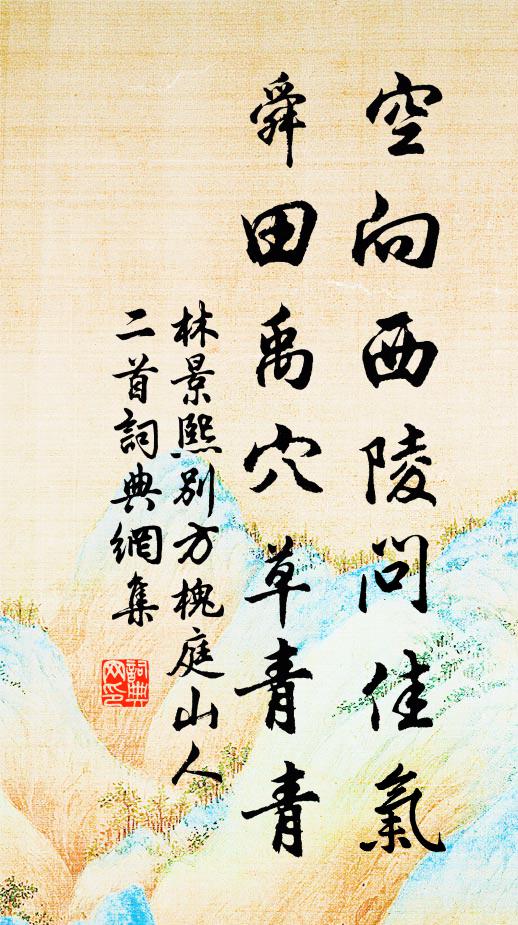 空向西陵問佳氣
舜田禹穴草青青
林景熙別方槐庭山人
二首詞典網集
詞典
网印